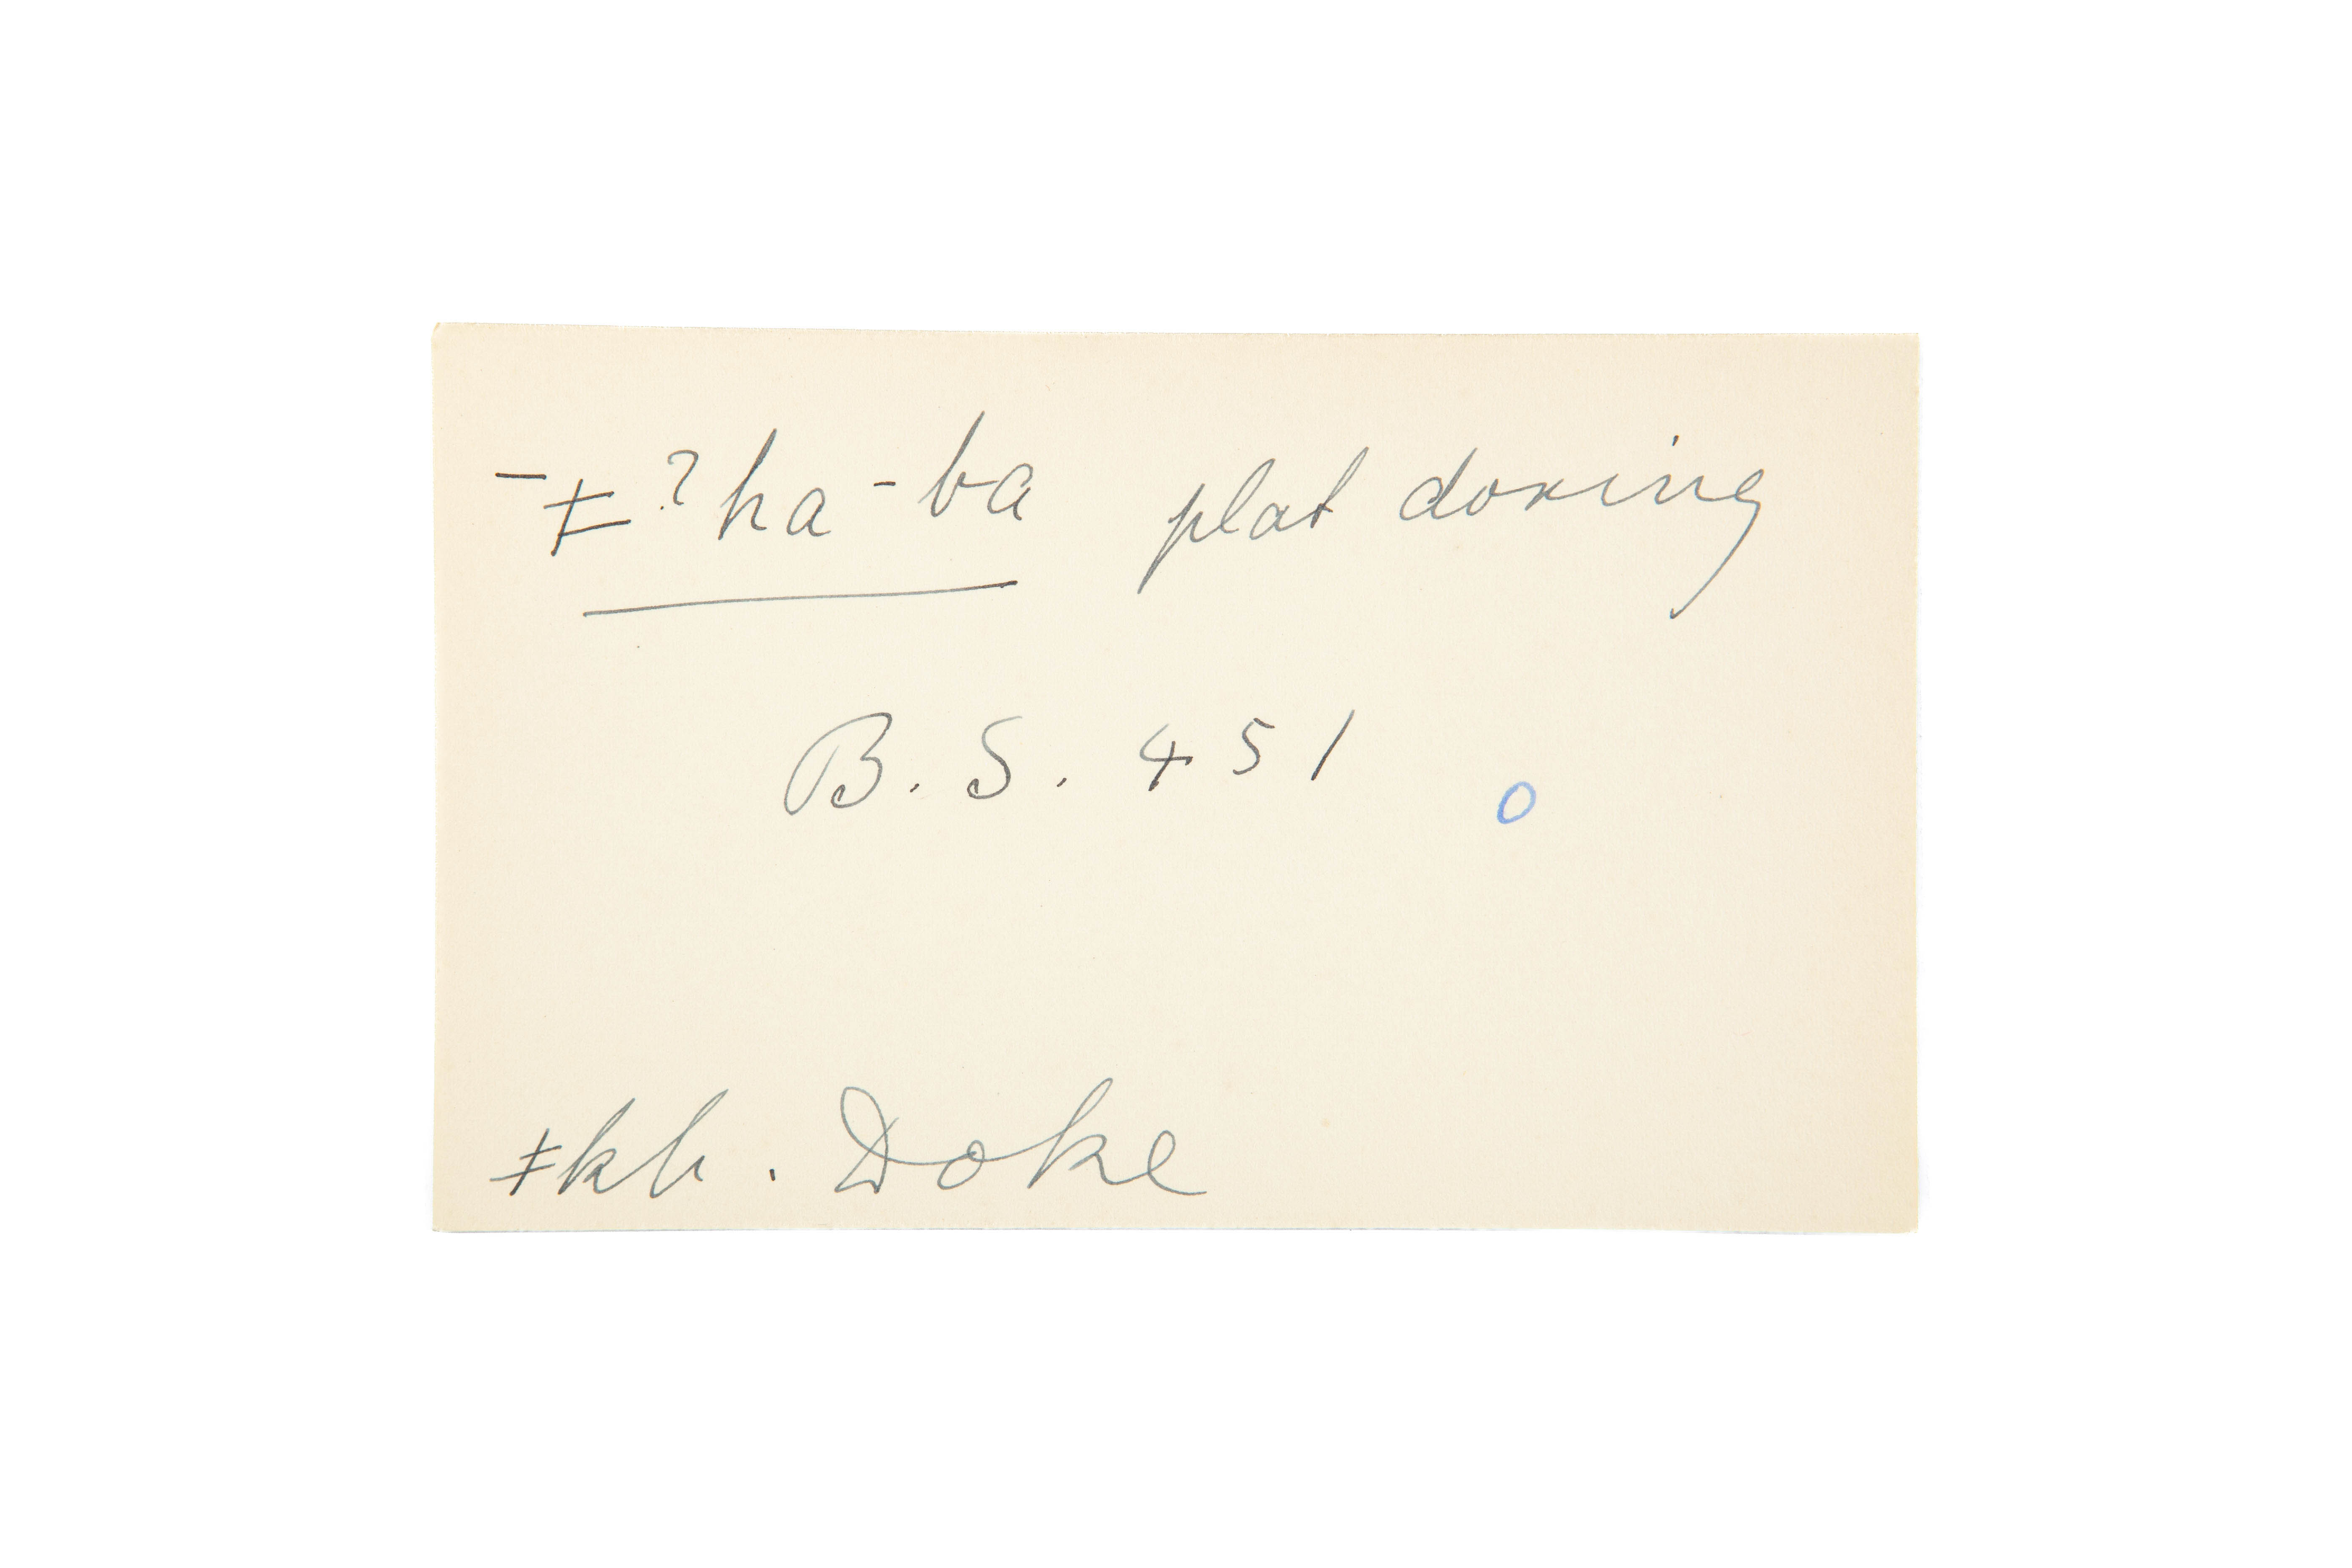 ‾ǂ ʔha-ba plat doring
B. S. 451 o
ǂkh. Doke